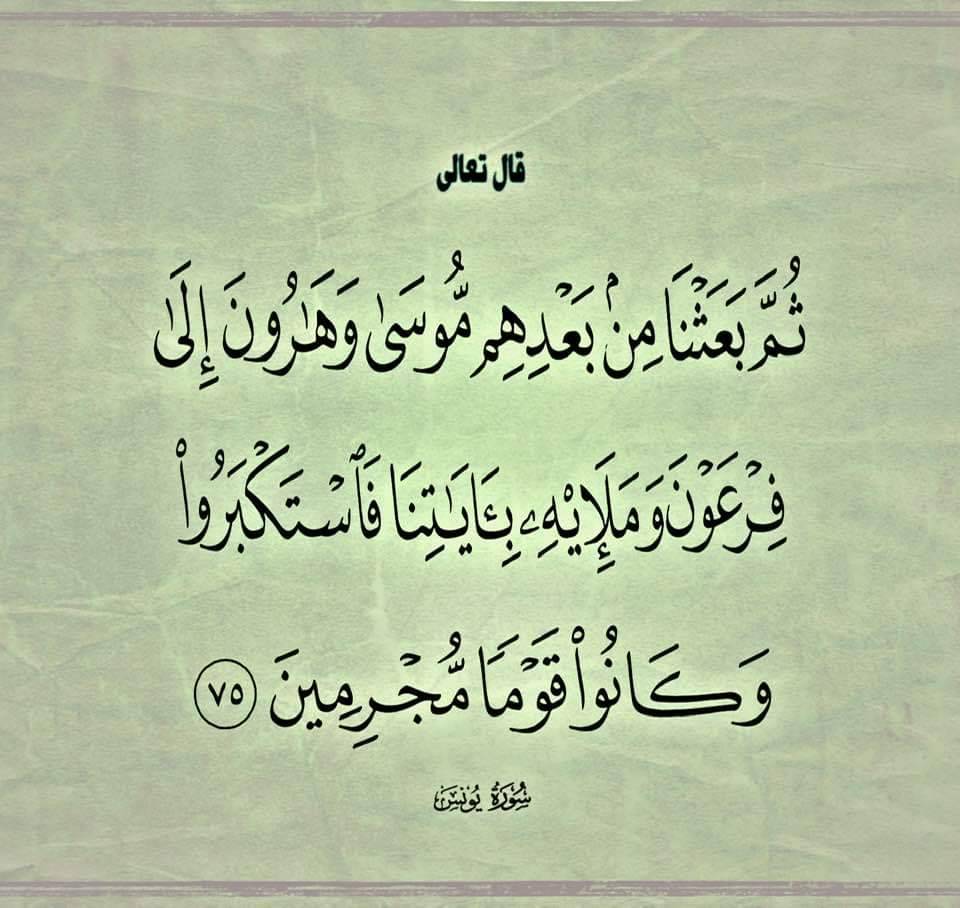 قال تعالى
ثُمَّ بَعَثْنَا مِنۢ بَعْدِهِم مُّوسَىٰ وَهَٰرُونَ إِلَىٰ
فِرْعَوْنَ وَمَلَإِيْهِۦ بِـَٔايَٰتِنَا فَٱسْتَكْبَرُوا۟
وَكَانُوا۟ قَوْمًا مُّجْرِمِينَ ٧٥
سُورَةُ يُونُسَ